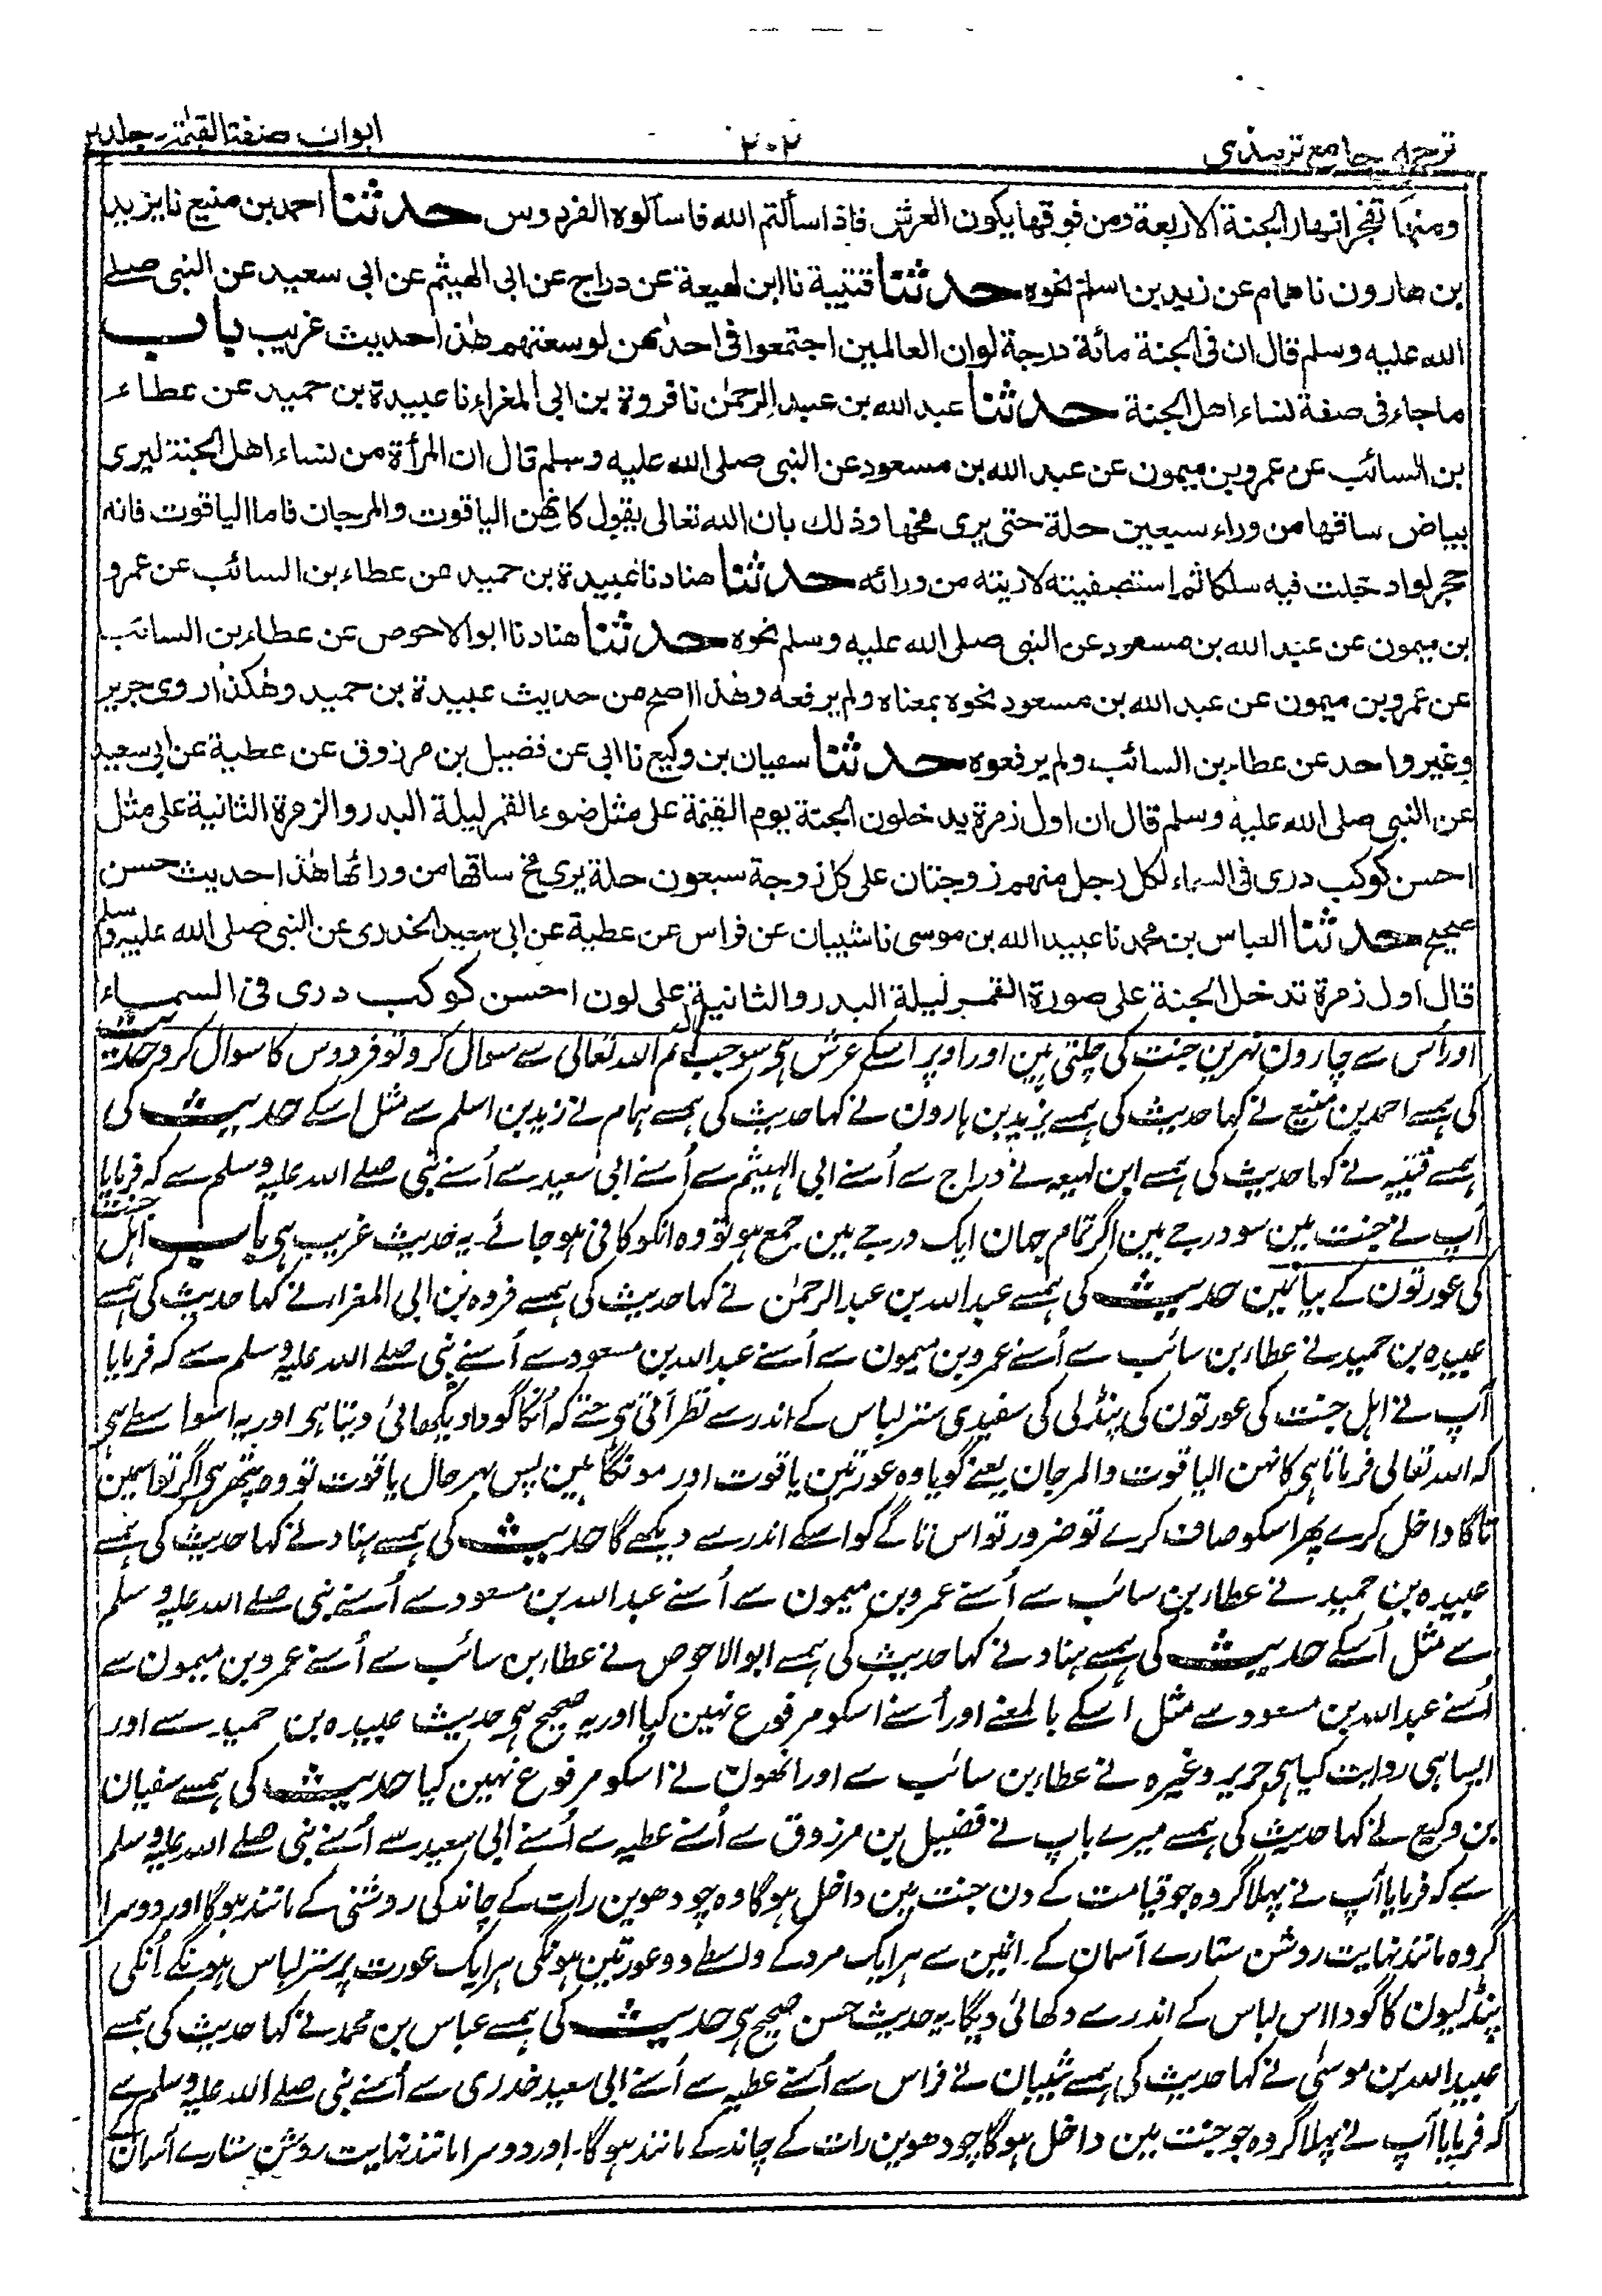 ترجمہ جامع ترمذی
۲۰۲
ابواب صفة القیٰمة جلد ۲
ومنها تفجر انهار الجنة الاربعة ومن فوقها يكون العرش فاذا سألتم الله فاسألوه الفردوس حدثنا احمد بن منيع نا يزيد
بن هارون نا همام عن زيد بن اسلم نحوه حدثنا قتيبة نا ابن لهيعة عن دراج عن ابى الهيثم عن ابى سعيد عن النبى صلے
الله عليه وسلم قال ان فى الجنة مائة درجة لو ان العالمين اجتمعوا فى احدٰهن لوسعتهم هٰذا حديث غريب باب
ما جاء فى صفة نساء اهل الجنة حدثنا عبد الله بن عبد الرحمٰن نا فروة بن ابى المغراء نا عبيدة بن حميد عن عطاء
بن السائب عن عمرو بن ميمون عن عبد الله بن مسعود عن النبى صلى الله عليه وسلم قال ان المرأة من نساء اهل الجنة ليرى
بياض ساقها من وراء سبعين حلة حتى يرى مخها وذلك بان الله تعالى يقول كانهن الياقوت والمرجان فاما الياقوت فانه
حجر لو ادخلت فيه سلكا ثم استصفيته لاريته من ورائه حدثنا هناد نا عبيدة بن حميد عن عطاء بن السائب عن عمرو
بن ميمون عن عبد الله بن مسعود عن النبى صلى الله عليه وسلم نحوه حدثنا هناد نا ابوالاحوص عن عطاء بن السائب
عن عمرو بن ميمون عن عبد الله بن مسعود نحوه بمعناه ولم يرفعه وهٰذا اصح من حديث عبيدة بن حميد وهٰكذا روى جرير
وغير واحد عن عطاء بن السائب ولم يرفعوه حدثنا سفيان بن وكيع نا ابى عن فضيل بن مرزوق عن عطية عن ابى سعيد
عن النبى صلى الله عليه وسلم قال ان اول زمرة يدخلون الجنة يوم القيٰمة على مثل ضوء القمر ليلة البدر والزمرة الثانية على مثل
احسن كوكب درى فى السماء لكل رجل منهم زوجتان على كل زوجة سبعون حلة يرى مخ ساقها من ورائها هٰذا حديث حسن
صحيح حدثنا العباس بن محمد نا عبيد الله بن موسى نا شيبان عن فراس عن عطية عن ابى سعيد الخدرى عن النبى صلى الله عليه وسلم
قال اول زمرة تدخل الجنة على صورة القمر ليلة البدر والثانية على لون احسن كوكب درى فى السماء
اور اُس سے چارون نہرین جنت کی چلتی ہین اور اوپر اسکے عرش ہی سو جب تم اللہ تعالی سے سوال کرو تو فردوس کا سوال کرو حدیث
کی ہمسے احمد بن منیع نے کہا حدیث کی ہمسے یزید بن ہارون نے کہا حدیث کی ہمسے ہمام نے زید بن اسلم سے مثل اسکے حدیث کی
ہمسے قتیبہ نے کہا حدیث کی ہمسے ابن لہیعہ نے دراج سے اُسنے ابی الہیثم سے اُسنے ابی سعید سے اُسنے نبی صلے اللہ علیہ وسلم سے کہ فرمایا
آپ نے جنت مین سو درجے ہین اگر تمام جہان ایک درجے مین جمع ہو تو وہ انکو کافی ہو جائے۔ یہ حدیث غریب ہی باب اہل جنت
کی عورتون کے بیانمین حدیث کی ہمسے عبد اللہ بن عبد الرحمٰن نے کہا حدیث کی ہمسے فروہ بن ابی المغراء نے کہا حدیث کی ہمسے
عبیدہ بن حمید نے عطاء بن سائب سے اُسنے عمرو بن میمون سے اُسنے عبد اللہ بن مسعود سے اُسنے نبی صلے اللہ علیہ وسلم سے کہ فرمایا
آپ نے اہل جنت کی عورتون کی پنڈلی کی سفیدی ستر لباس کے اندر سے نظر آتی ہی حتے کہ اُنکا گودا دیکھائی دیتا ہی اور یہ اسواسطے ہی
کہ اللہ تعالی فرماتا ہی کانهن الیاقوت والمرجان یعنے گویا وہ عورتین یاقوت اور مونگا ہین پس بہر حال یاقوت تو وہ پتھر ہی اگر تو اسمین
تاگا داخل کرے پھر اسکو صاف کرے تو ضرور تو اس تاگے کو اسکے اندر سے دیکھے گا حدیث کی ہمسے ہناد نے کہا حدیث کی ہمسے
عبیدہ بن حمید نے عطاء بن سائب سے اُسنے عمرو بن میمون سے اُسنے عبد اللہ بن مسعود سے اُسنے نبی صلے اللہ علیہ وسلم
سے مثل اُسکے حدیث کی ہمسے ہناد نے کہا حدیث کی ہمسے ابوالاحوص نے عطاء بن سائب سے اُسنے عمرو بن میمون سے
اُسنے عبد اللہ بن مسعود سے مثل اسکے بالمعنے اور اُسنے اسکو مرفوع نہین کیا اور یہ صحیح ہی حدیث عبیدہ بن حمید سے اور
ایسا ہی روایت کیا ہی جریر وغیرہ نے عطاء بن سائب سے اور انھون نے اسکو مرفوع نہین کیا حدیث کی ہمسے سفیان
بن وکیع نے کہا حدیث کی ہمسے میرے باپ نے فضیل بن مرزوق سے اُسنے عطیہ سے اُسنے ابی سعید سے اُسنے نبی صلے اللہ علیہ وسلم
سے کہ فرمایا آپ نے پہلا گروہ جو قیامت کے دن جنت مین داخل ہو گا وہ چودھوین رات کے چاند کی روشنی کے مانند ہو گا اور دوسرا
گروہ مانند نہایت روشن ستارے آسمان کے۔ انمین سے ہر ایک مرد کے واسطے دو عورتین ہونگی ہر ایک عورت پر ستر لباس ہونگے اُنکی
پنڈلیون کا گودا اس لباس کے اندر سے دکھائی دیگا یہ حدیث حسن صحیح ہی حدیث کی ہمسے عباس بن محمد نے کہا حدیث کی ہمسے
عبید اللہ بن موسٰی نے کہا حدیث کی ہمسے شیبان نے فراس سے اُسنے عطیہ سے اُسنے ابی سعید خدری سے اُسنے نبی صلے اللہ علیہ وسلم سے
کہ فرمایا آپ نے پہلا گروہ جو جنت مین داخل ہو گا چودھوین رات کے چاند کے مانند ہو گا۔ اور دوسرا مانند نہایت روشن ستارے آسمان کے